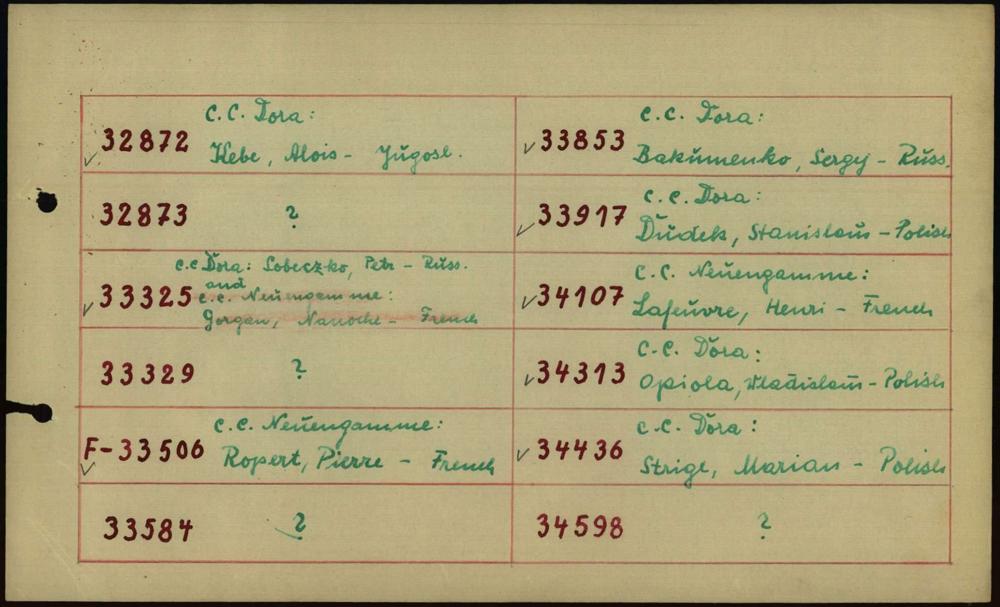 C.C. Dora:
✓ 32872 Kebe, Alois - Jugosl.
32873 ?
c.c Dora: Lobeczko, Petr - Russ.
and
✓ 33325 c.c. Neuengamme:
Gorgan, - French
33329 ?
c.c. Neuengamme:
✓ F-33506 Ropert, Pierre - French
33584 ?
c.c. Dora:
✓ 33853 Bakumenko, Sergij - Russ.
c.c. Dora:
✓ 33917 Dudek, Stanislaus - Polish
C.C. Neuengamme:
✓ 34107 Lafeuvre, Henri - French
C.C. Dora:
✓ 34313 Opiola, Wladislaus - Polish
c.c. Dora:
✓ 34436 Strige, Marian - Polish
34598 ?